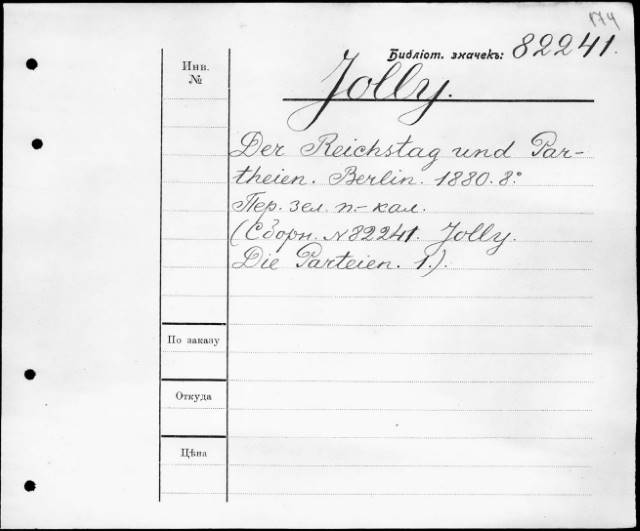 174
Библіот. значекъ: 82241.
Инв.
№
Jolly.
Der Reichstag und Par-
theien. Berlin. 1880. 8.°
Пер. зел. п.-кал.
(Сборн. № 82241. Jolly.
Die Parteien. 1.).
По заказу
Откуда
Цѣна